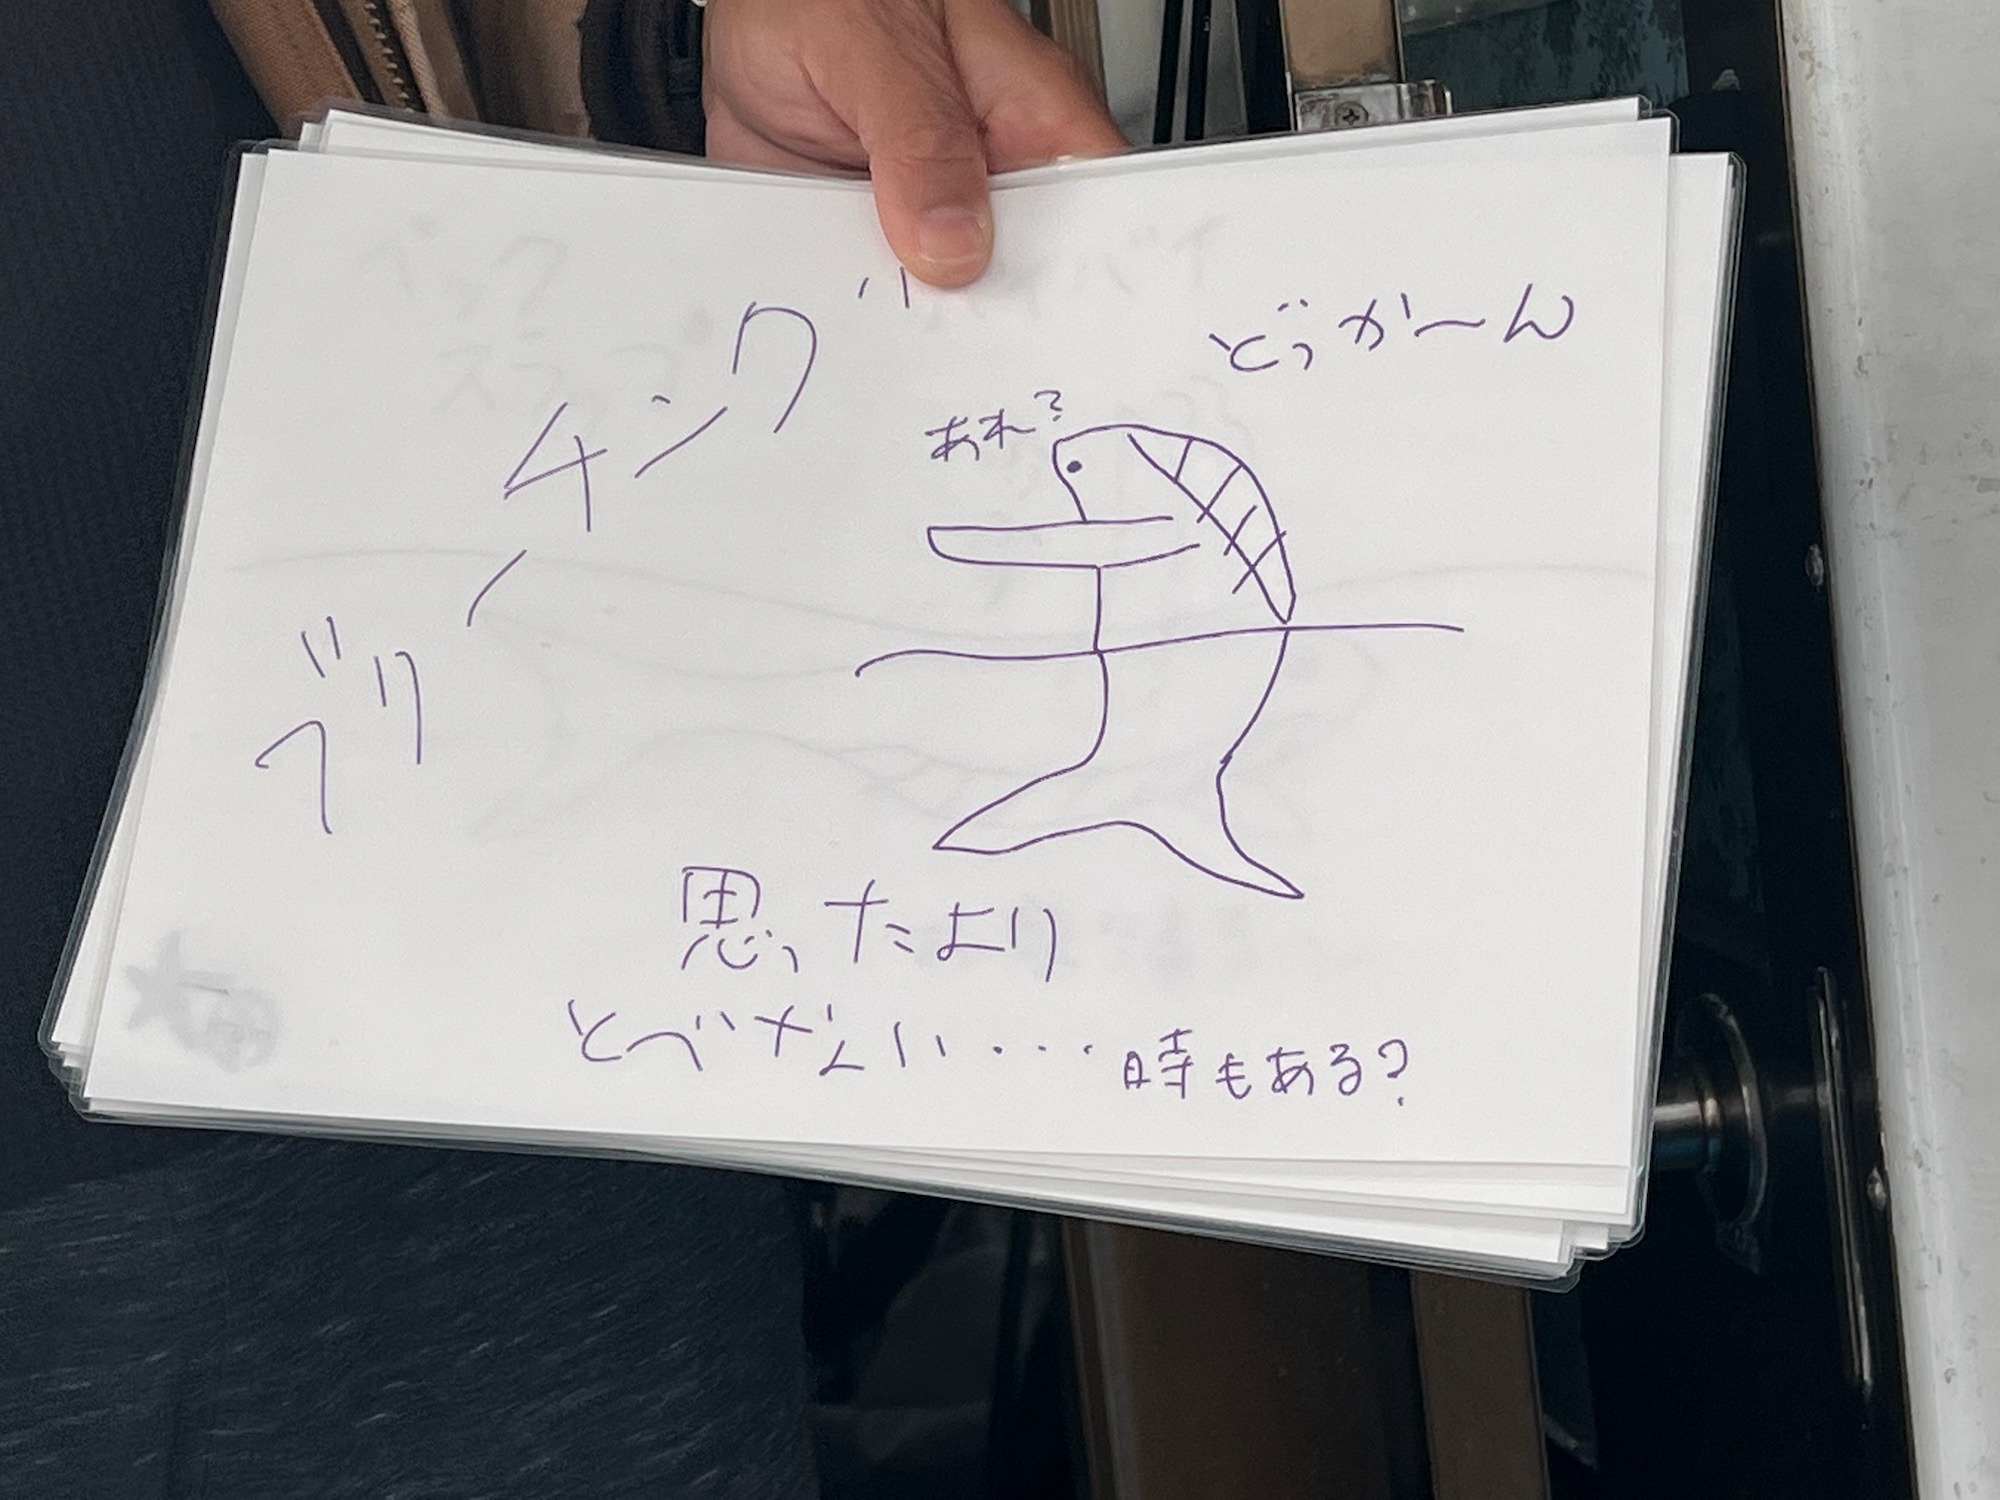 ブリーチング
どっかーん
あれ?
思ったより
とべない・・・時もある?